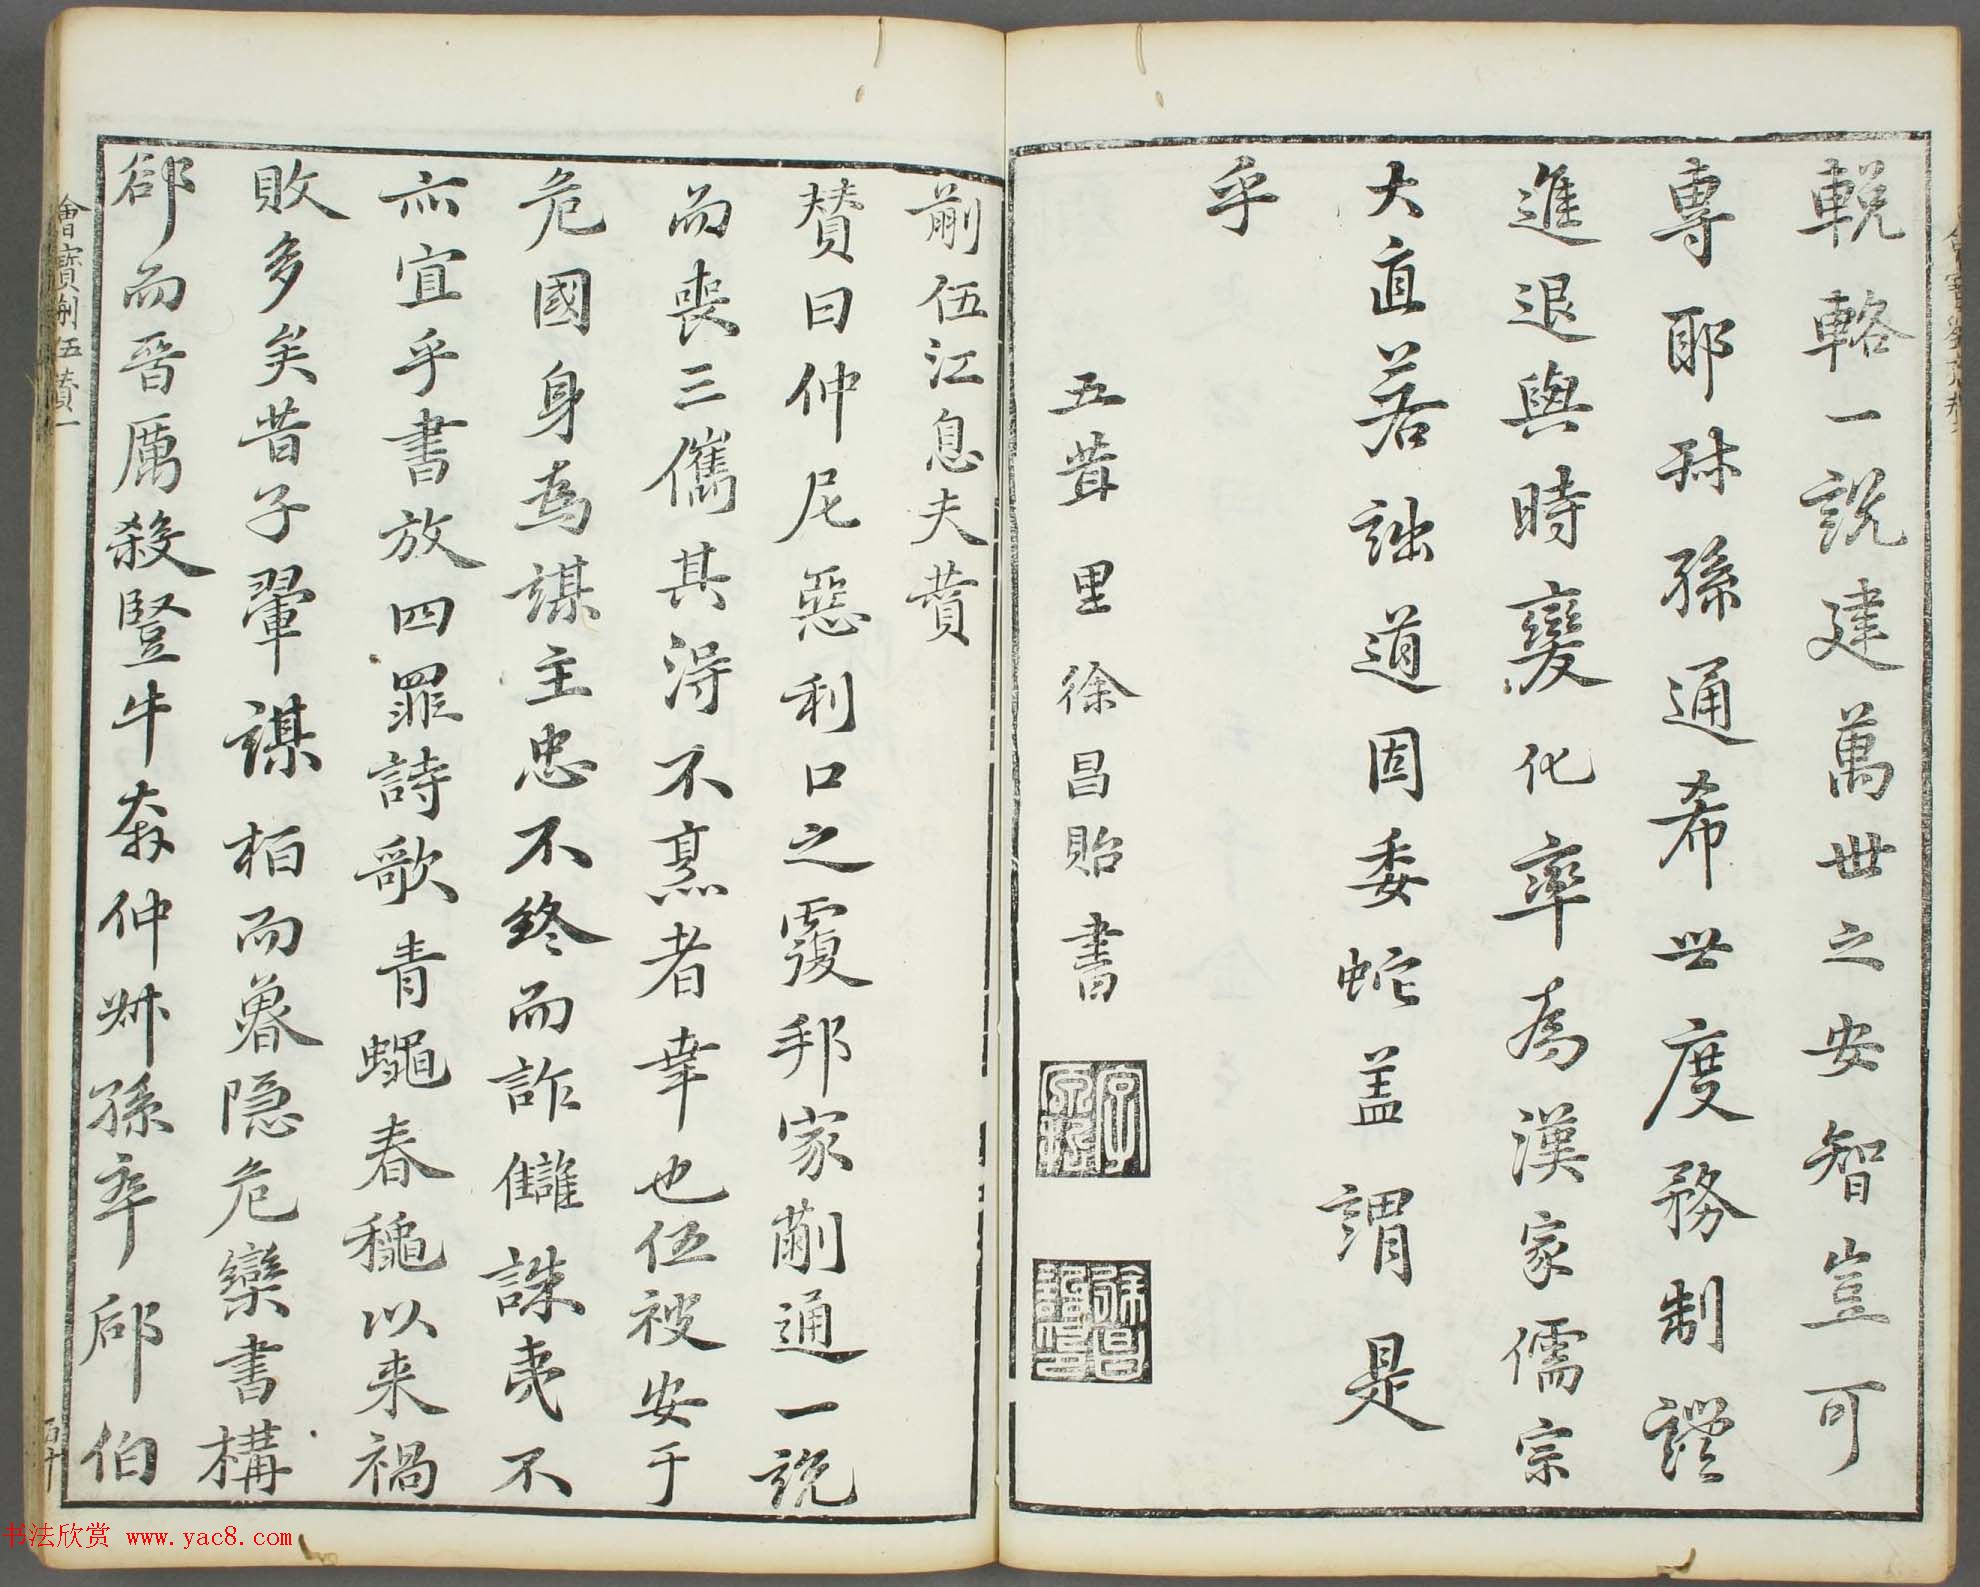 輓輅一說建萬世之安智豈可
專耶叔孫通希世度務制禮
進退與時變化卒為漢家儒宗
大直若詘道固委蛇蓋謂是
乎
五茸里徐昌貽書
蒯伍江息夫贊
贊曰仲尼惡利口之覆邦家蒯通一說
而喪三儁其得不烹者幸也伍被安于
危國身為謀主忠不終而詐讎誅夷不
亦宜乎書放四罪詩歌青蠅春穐以来
禍敗多矣昔子翬謀桓而魯隱危欒書構
郤而晉厲殺豎牛奔仲叔孫卒郈伯
書法欣赏 www.yac8.com